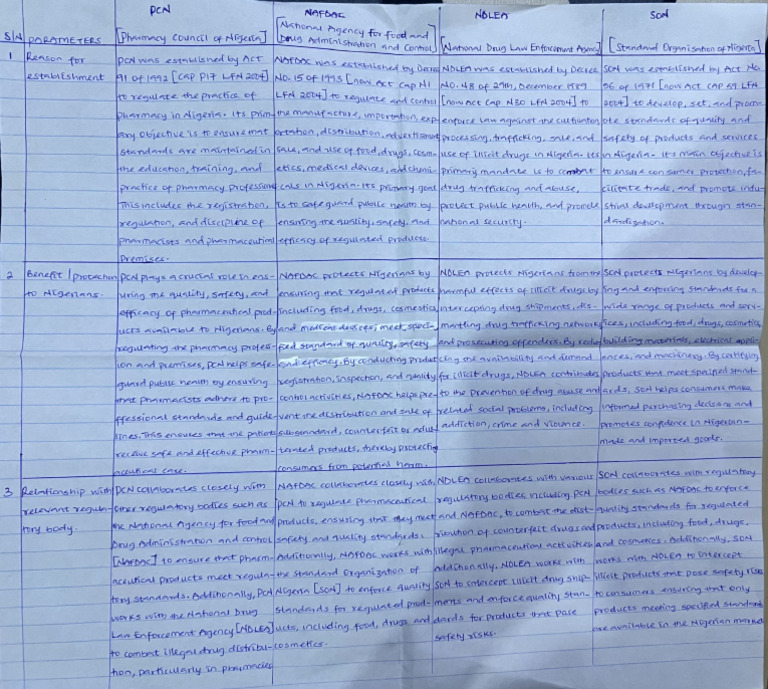 PCN
NAFDAC
NDLEA
SON
S/N PARAMETERS
[Pharmacy Council of Nigeria]
[National Agency for food and
Drug Administration and Control]
[National Drug Law Enforcement Agency]
[Standard Organisation of Nigeria]
1 Reason for
establishment
PCN was established by Act
91 of 1992 [CAP P17 LFN 2004]
to regulate the practice of
pharmacy in Nigeria. Its prim-
ary objective is to ensure that
standards are maintained in
the education, training, and
practice of pharmacy professional
This includes the registration,
regulation, and discipline of
pharmacists and pharmaceutical
premises.
NAFDAC was established by Decree
No. 15 of 1993 [now Act cap N1
LFN 2004] to regulate and control
the manufacture, importation, exp-
ortation, distribution, advertisement
sale, and use of food, drugs, cosm-
etics, medical devices, and chemi-
cals in Nigeria. Its primary goal
is to safeguard public health by
ensuring the quality, safety, and
efficacy of regulated products
NDLEA was established by Decree
No. 48 of 29th, December 1989
[now Act cap N30 LFN 2004] to
enforce law against the cultivation
processing, trafficking, sale, and
use of illicit drugs in Nigeria. Its
primary mandate is to combat
drug trafficking and abuse,
protect public health, and promote
national security.
SON was established by Act No.
56 of 1971 [now Act cap S9 LFN
2004] to develop, set, and prom-
ote standards of quality and
safety of products and services
in Nigeria. It's main objective is
to ensure consumer protection, fa-
cilitate trade, and promote indu-
strial development through stan-
dardization.
2 Benefit / protection
to Nigerians.
PCN plays a crucial role in ens-
uring the quality, safety, and
efficacy of pharmaceutical prod-
ucts available to Nigerians. By
regulating the pharmacy profess-
ion and premises, PCN helps safe-
guard public health by ensuring
that pharmacists adhere to pro-
ffessional standards and guide-
lines. This ensures that the patient
receive safe and effective pharm-
aceutical care.
NAFDAC protects Nigerians by
ensuring that regulated products
including food, drugs, cosmetics
and medical devices, meet speci-
fied standard of quality, safety
and efficacy. By conducting product
registration, inspection, and quality
control activities, NAFDAC helps pre-
vent the distribution and sale of
substandard, counterfeit or adul-
terated products, thereby protecting
consumers from potential harm.
NDLEA protects Nigerians from the
harmful effects of illicit drugs by
intercepting drug shipments, dis-
manting drug trafficking network
and prosecuting offenders. By redu-
cing the availability and demand
for illicit drugs, NDLEA contributes
to the prevention of drug abuse and
related social problems, including
addiction, crime and violence.
SON protects Nigerians by develop-
ing and enforcing standards for a
wide range of products and serv-
ices, including food, drugs, cosmetics,
building materials, electrical appli-
ances, and machinery. By certifying
products that meet specified stand-
ards, SON helps consumers make
informed purchasing decisions and
promotes confidence in Nigerian-
made and imported goods.
3 Relationship with
relevant regula-
tory body.
PCN collaborates closely with
other regulatory bodies such as
the National Agency for food and
Drug Administration and control
[NAFDAC] to ensure that pharm-
aceutical products meet regula-
tory standards. Additionally, PCN
works with the National Drug
Law Enforcement Agency [NDLEA]
to combat illegal drug distribu-
tion, particularly in pharmacies
NAFDAC collaborates closely with
PCN to regulate pharmaceutical
products, ensuring that they meet
safety and quality standards.
Additionally, NAFDAC works with
the Standard Organization of
Nigeria [SON] to enforce quality
standards for regulated prod-
ucts, including food, drugs and
cosmetics.
NDLEA collaborates with various
regulatory bodies, including PCN
and NAFDAC, to combat the dist-
ribution of counterfeit drugs and
illegal pharmaceutical activities
Additionally, NDLEA works with
SON to intercept illicit drug ship-
ments and enforce quality stan-
dards for products that pose
safety risks.
SON collaborates with regulatory
bodies such as NAFDAC to enforce
quality standards for regulated
products, including food, drugs,
and cosmetics. Additionally, SON
works with NDLEA to intercept
illicit products that pose safety risks
to consumers ensuring that only
products meeting specified standard
are available in the Nigerian market